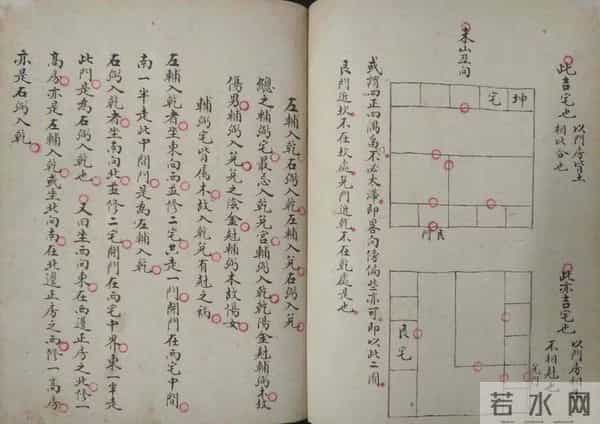 此吉宅也
以門房皆土
相以合也
未山丑向
坤
宅
艮
門
此亦吉宅也
以門房相
不相尅也
艮
宅
或謂四正四隅髙不必太滞即畧向傍偏些亦可即以此二圖
艮門近坎不在坎處兑門近乾不在乾處是也
左輔入乾右弼入乾左輔入兑右弼入兑
總之輔弼宅最忌入乾兑宮輔弼入乾乾陽金尅輔弼木故
傷男輔弼入兑兑之陰金尅輔弼木故傷女
輔弼宅皆屬木故入乾兑有尅之禍
左輔入乾者坐東向西並修二宅共走一門開門在兩宅中間
南一半走此中間門是為左輔入乾
右弼入乾者坐南向北並修二宅開門在兩宅中界東一半走
此門是為右弼入乾也 又回坐西向東在西邊正房之北修一
高房亦是左輔入乾或坐北向南在北邊正房之西修一高房
亦是右弼入乾
若水网